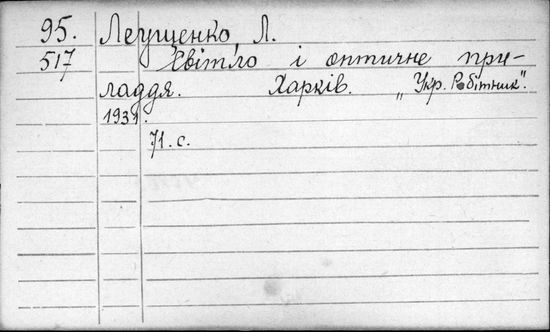 95. Леущенко Л.
517 Світло і оптичне при-
ладдя. Харків. „Укр. Робітник".
1931.
71. с.